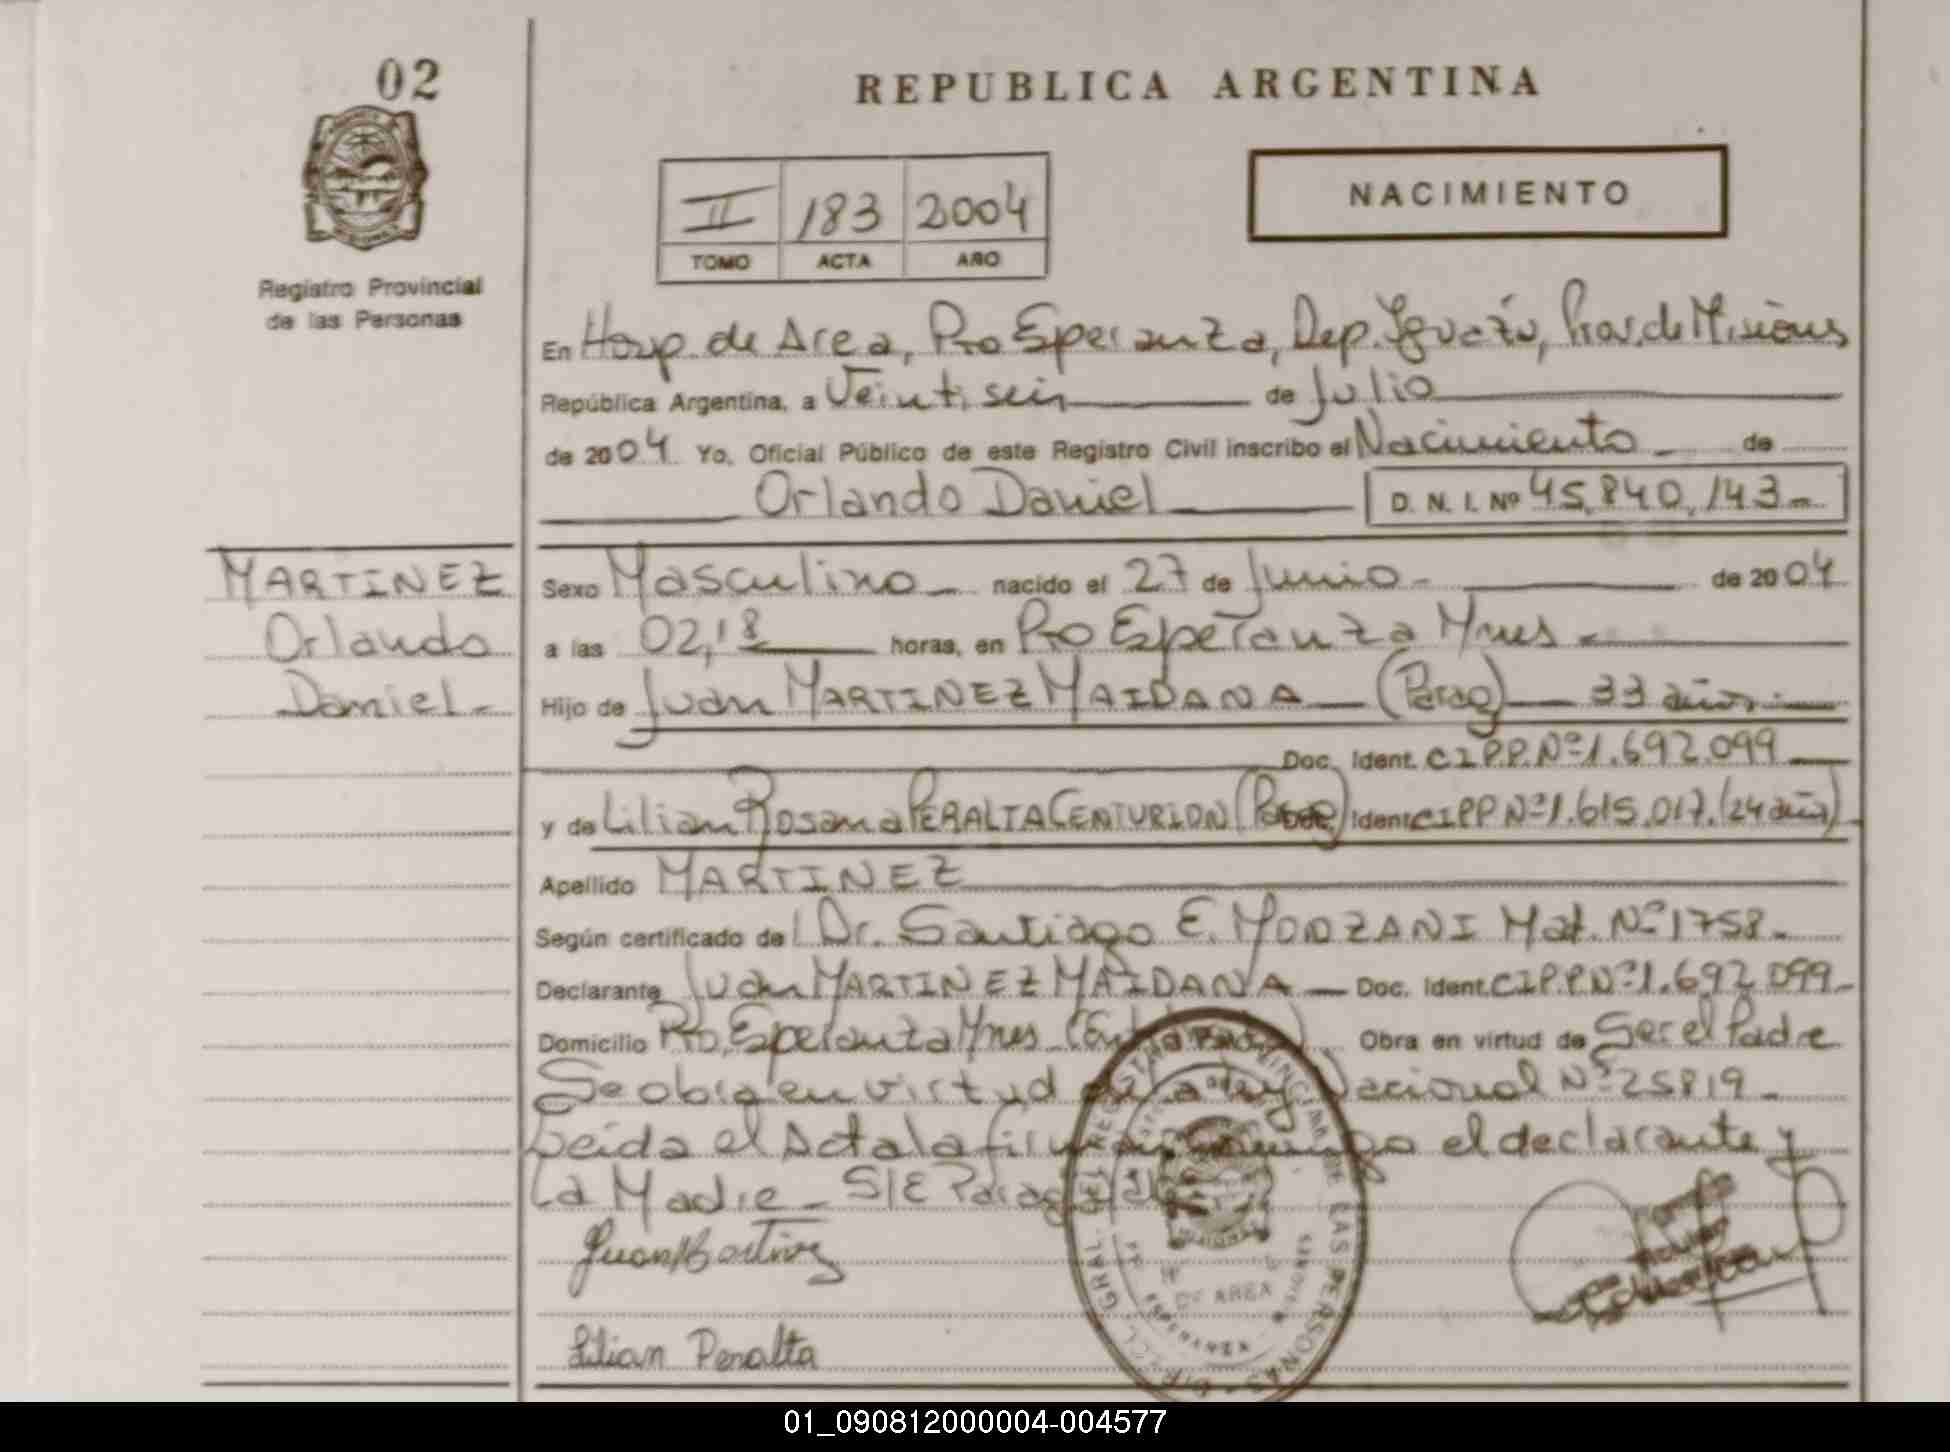 02
REPUBLICA ARGENTINA
Registro Provincial
de las Personas
II 183 2004
TOMO ACTA AÑO
NACIMIENTO
En Hosp. de Area, Pto Esperanza, Dep. Iguazú, Prov. de Misiones
República Argentina, a Veintiseis de Julio
de 2004 Yo, Oficial Público de este Registro Civil inscribo el Nacimiento de
Orlando Daniel D. N. I. Nº 45.840.143
MARTINEZ
Orlando
Daniel
Sexo Masculino nacido el 27 de Junio de 2004
a las 02,18 horas, en Pto Esperanza Mnes
Hijo de Juan MARTINEZ MAIDANA (Parag) 33 años
Doc. Ident. C.I.P.P. Nº 1.692.099
y de Lilian Rosana PERALTA CENTURION (Parag) Doc. Ident C I P P Nº 1.615.017. (24 años)
Apellido MARTINEZ
Según certificado del Dr. Santiago E. Mat. Nº 1758
Declarante Juan MARTINEZ MAIDANA Doc. Ident. C.I.P.P. Nº 1.692.099
Domicilio Pto. Esperanza Mnes Obra en virtud de Ser el Padre
Se obra en virtud de la Ley Nacional Nº 25819
Leida el Acta la firman conmigo el declarante y
La Madre S/E
Juan Martinez
Lilian Peralta
DE AREA
01_090812000004-004577